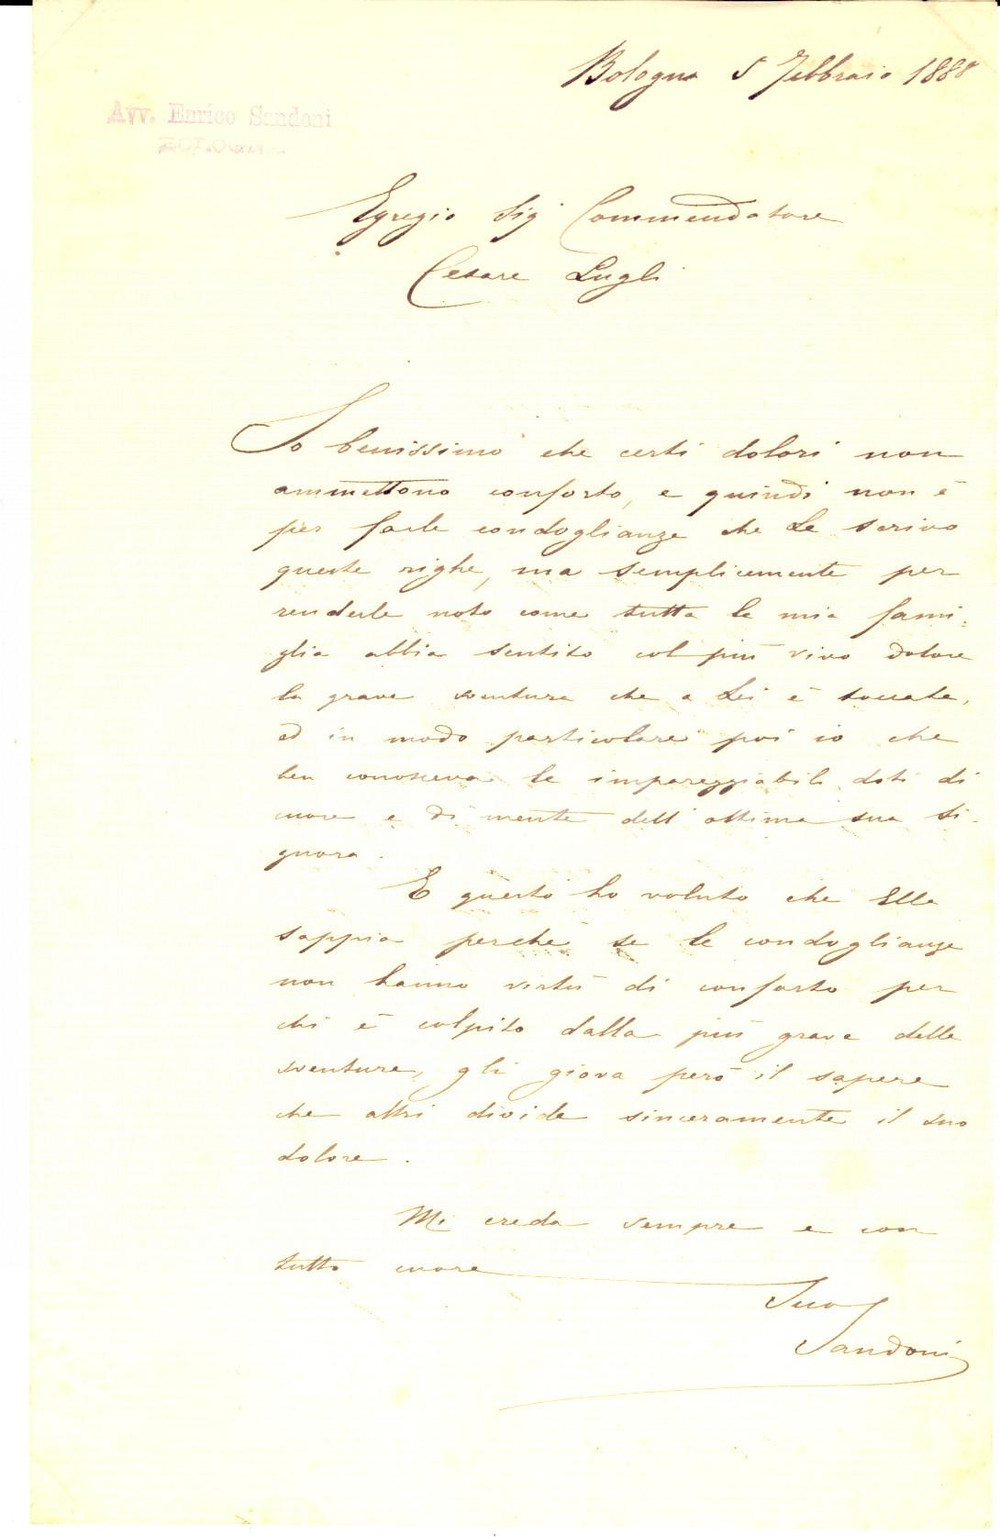 Bologna 5 Febbraio 1888
Avv. Enrico Sandoni
BOLOGNA
Egregio Sig Commendatore
Cesare Lugli
So benissimo che certi dolori non
ammettono conforto, e quindi non è
per farle condoglianze che Le scrivo
queste righe, ma semplicemente per
renderle noto come tutta la mia fami-
glia abbia sentito col più vivo dolore
la grave sventura che a Lei è toccata,
ed in modo particolare poi io che
ben conosceva le impareggiabili doti di
cuore e di mente dell'ottima sua Si-
gnora.
E questo ho voluto che Ella
sappia perchè se le condoglianze
non hanno virtù di conforto per
chi è colpito dalla più grave delle
sventure, gli giova però il sapere
che altri divide sinceramente il suo
dolore.
Mi creda sempre e con
tutto cuore
Suo
Sandoni